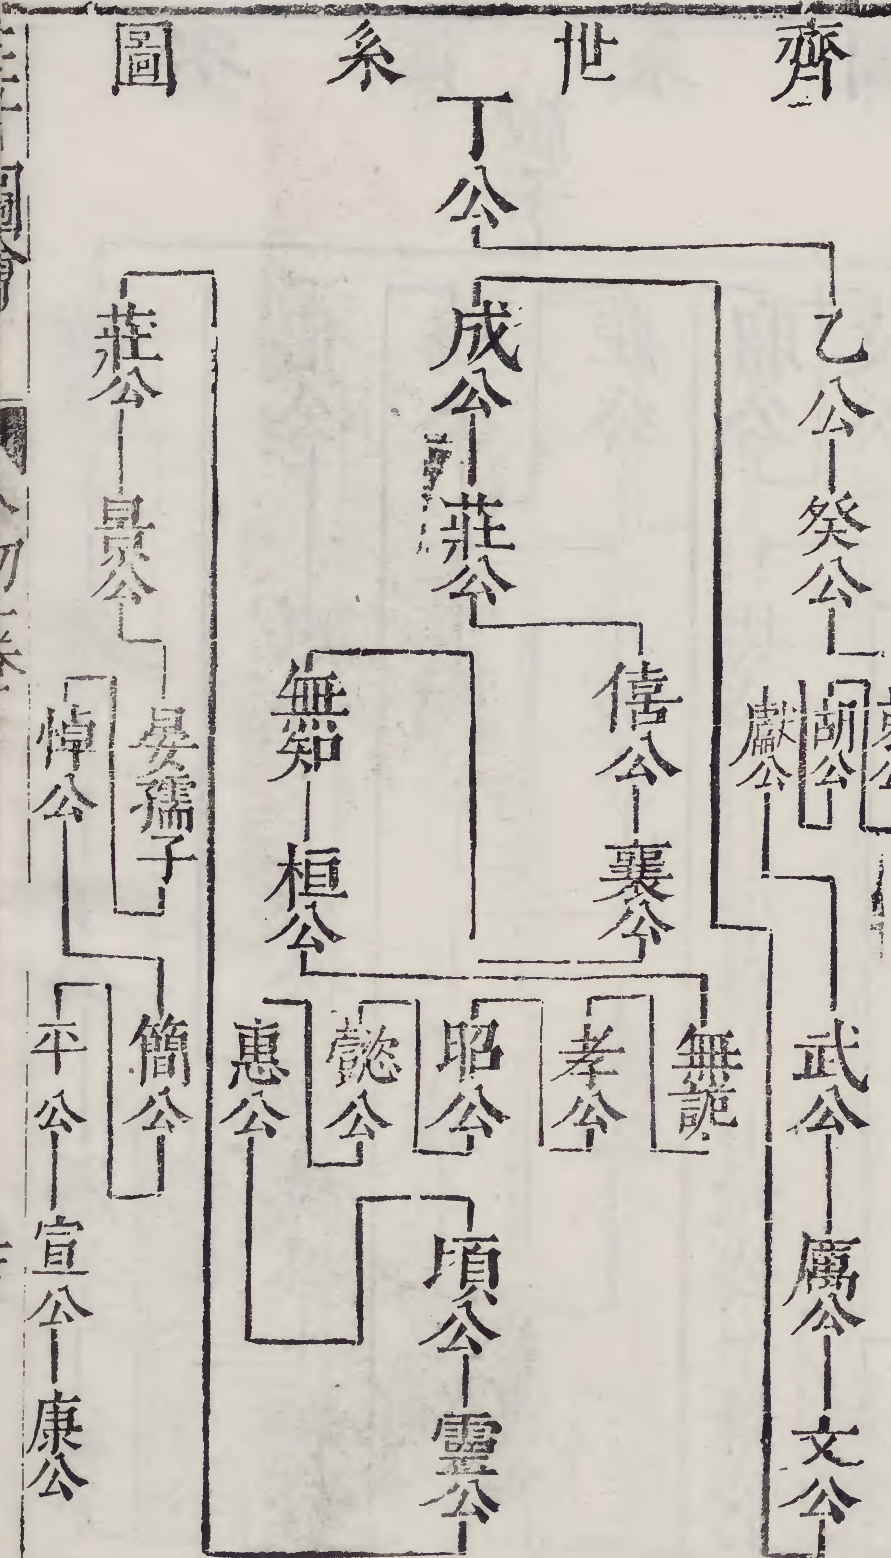 齊世系圖
丁公
乙公
癸公
胡公
獻公
武公
厲公
文公
成公
莊公
僖公
襄公
無知
桓公
無詭
孝公
昭公
懿公
惠公
頃公
靈公
莊公
景公
晏孺子
悼公
簡公
平公
宣公
康公